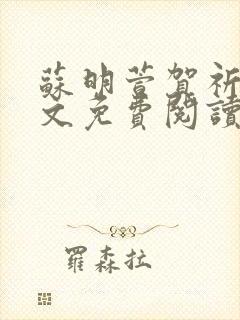 蘇明萱賀祈
文免費閱讀
羅森拉